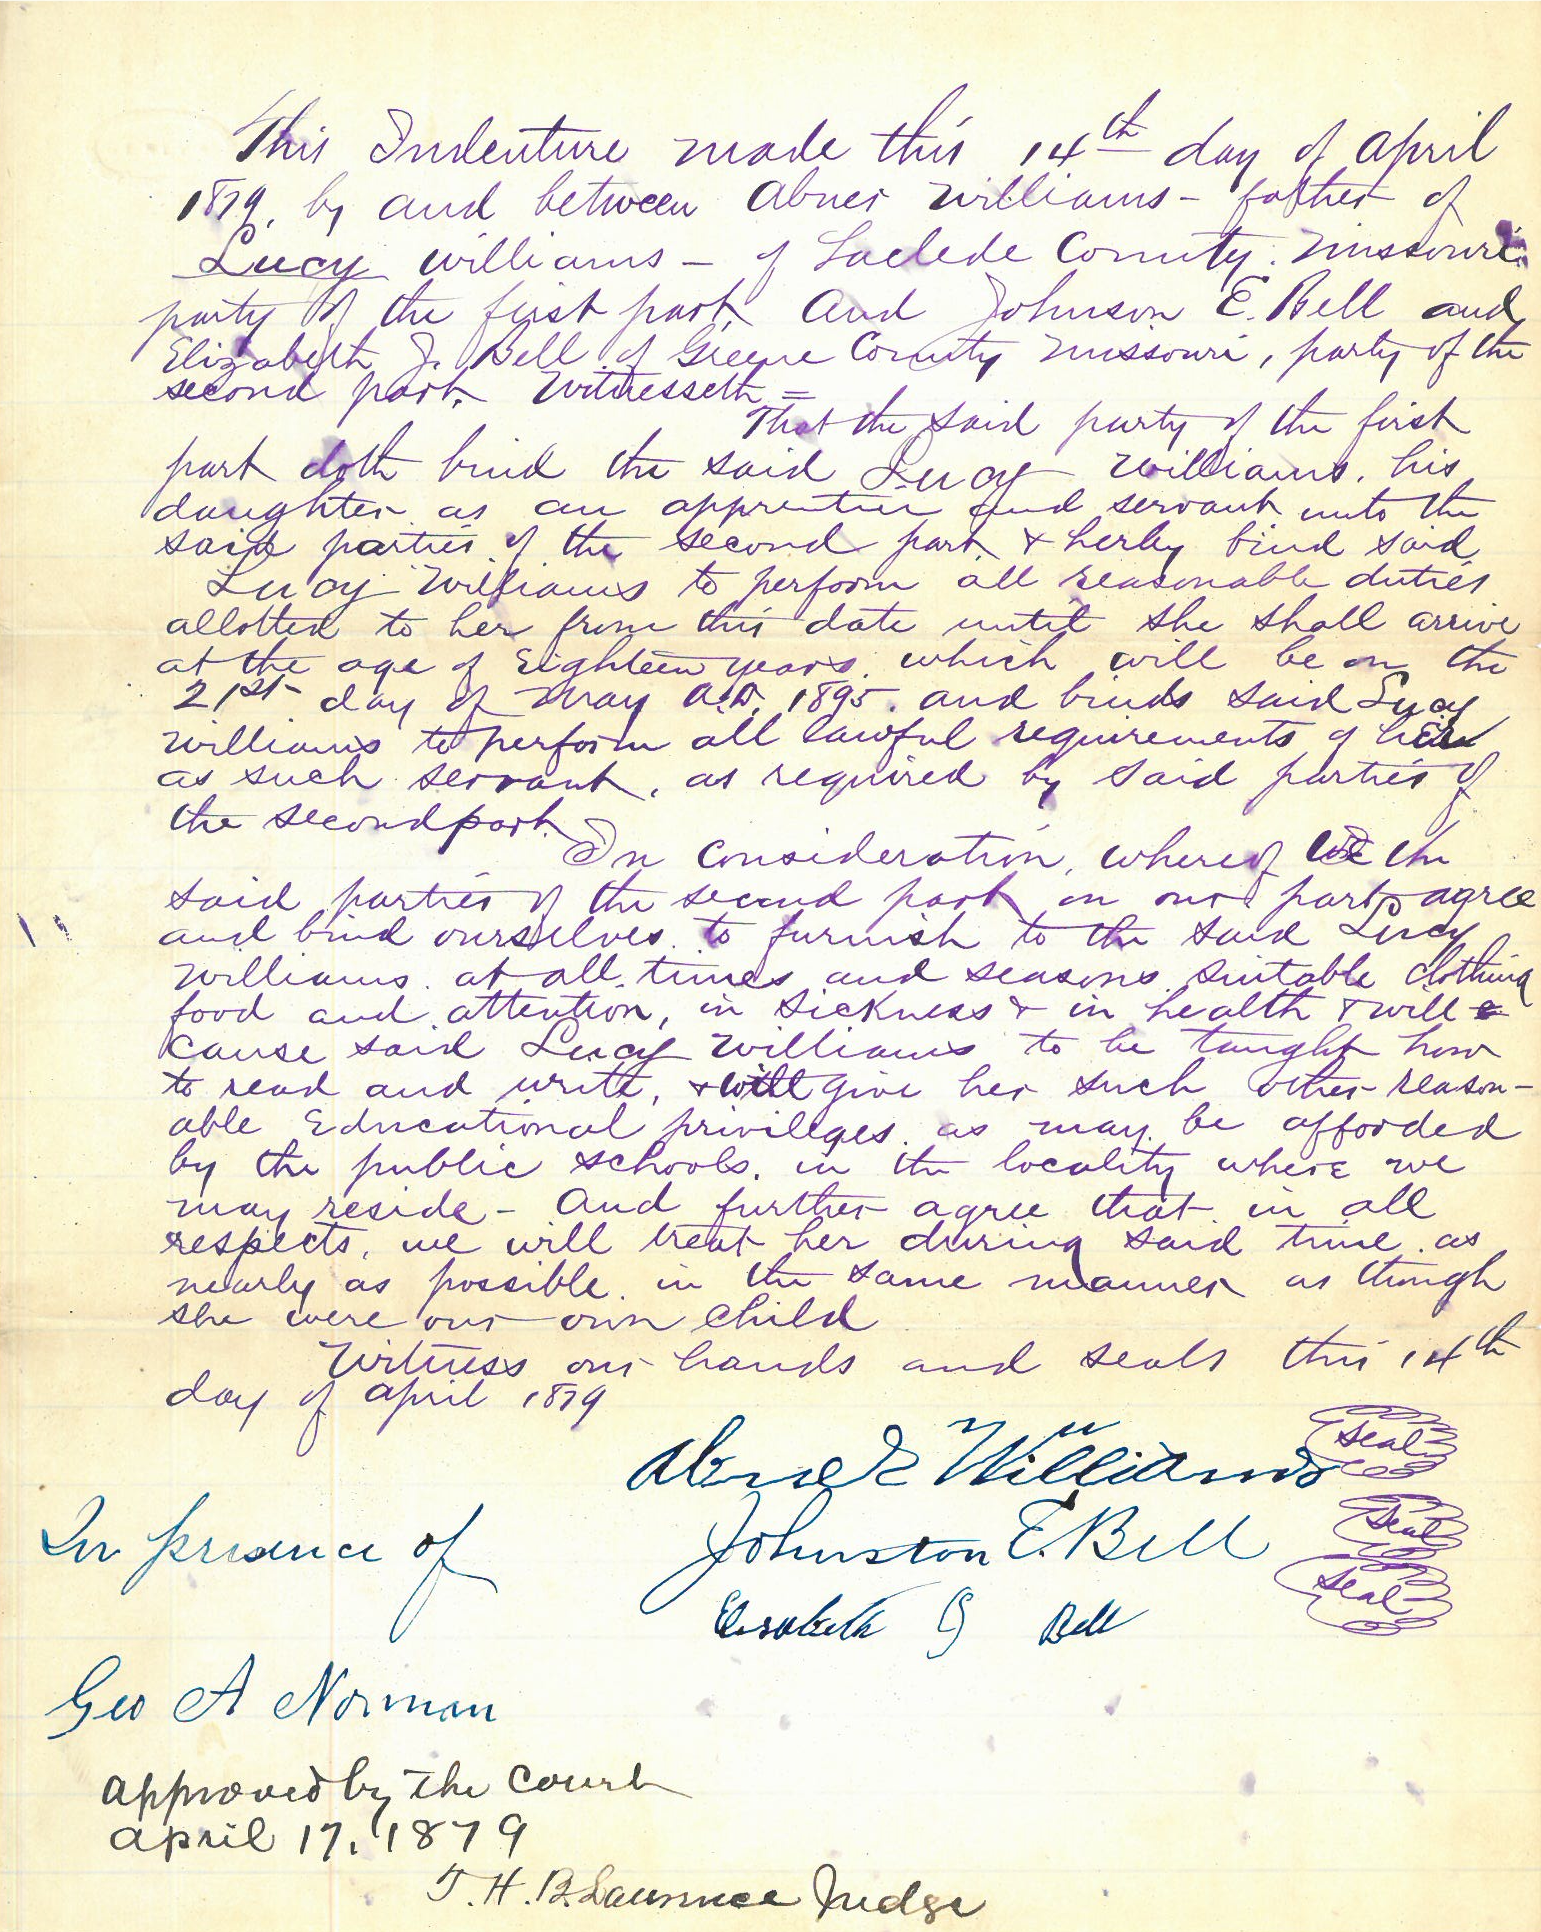 This Indenture made this 14th day of April
1879, by and between Abner Williams - father of
Lucy Williams - of Laclede County. Missouri
party of the first part, And Johnson E. Bell and
Elizabeth J. Bell of Greene County Missouri, party of the
second part. Witnesseth =
That the said party of the first
part doth bind the said Lucy Williams, his
daughter as an apprentice and servant unto the
said parties of the second part, & herby bind said
Lucy Williams to perform all reasonable duties
allotted to her from this date until she shall arrive
at the age of Eighteen years. which will be on the
21st day of May A.D. 1895. and binds said Lucy
Williams to perform all lawful requirements of her
as such servant, as required by said parties of
the second part.
In consideration, whereof we the
said parties of the second part on our part agree
and bind ourselves to furnish to the said Lucy
Williams. at all times and seasons suitable clothing
food and attention, in sickness & in health & will
cause said Lucy Williams to be taught how
to read and write, & will give her such other reason-
able Educational privileges. as may be afforded
by the public schools. in the locality where we
may reside - And further agree that in all
respects, we will treat her during said time. as
nearly as possible. in the same manner as though
she were our own child
Witness our hands and seals this 14th
day of April 1879
Abner Williams Seal
In presence of Johnston E. Bell Seal
Elisabeth J Bell Seal
Geo A Norman
Approved by the Court
April 17, 1879
T. H. B. Lawrence Judge